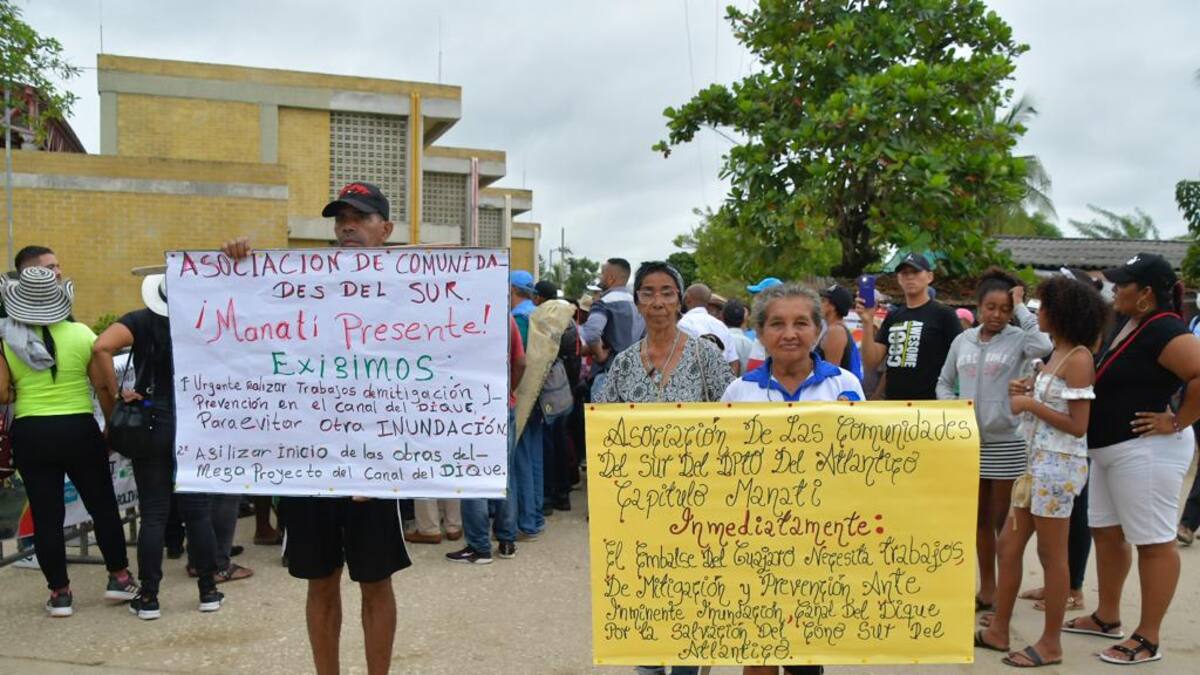 ASOCIACION DE COMUNIDA-
DES DEL SUR.
¡Manatí Presente!
EXISIMOS:
1º Urgente Realizar Trabajos de mitigación y
Prevención en el canal del DIQUE,
Para evitar otra INUNDACIÓN
2º Asilizar Inicio de las obras del
Mega Proyecto del Canal del DIQUE.
Asociación De Las Comunidades
Del Sur Del DPTO Del Atlantico
Capitulo Manatí
Inmediatamente:
El Embalse Del Guajaro Necesita Trabajos,
De Mitigación y Prevención Ante
Inminente Inundación, Canal Del Dique
Por la Salvación Del Cono Sur Del
Atlantico.
AWESOME